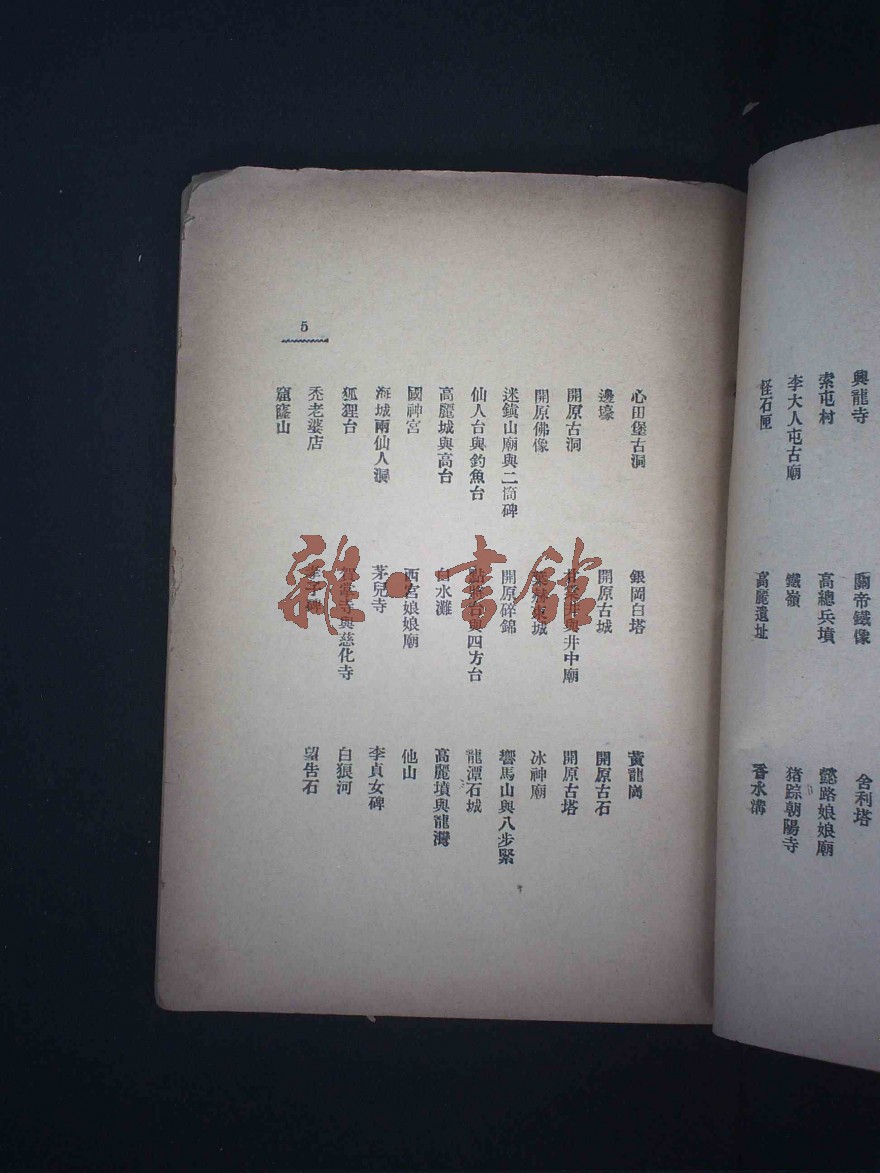 興龍寺
關帝鐵像
舍利塔
索屯村
高總兵墳
懿路娘娘廟
李大人屯古廟
鐵嶺
猪踪朝陽寺
怪石匣
高麗遺址
香水溝
5
心田堡古洞
銀岡白塔
黃龍崗
邊壕
開原古城
開原古石
開原古洞
井與井中廟
開原古塔
開原佛像
東城
冰神廟
迷鎮山廟與二筒碑
開原碎錦
響馬山與八步緊
仙人台與釣魚台
點將台與四方台
龍潭石城
高麗城與高台
白水灘
高麗墳與龍灣
國神宮
西宮娘娘廟
他山
海城兩仙人洞
茅兒寺
李貞女碑
狐狸台
寺與慈化寺
白狼河
禿老婆店
孝子碑
望告石
窟窿山
雜·書館